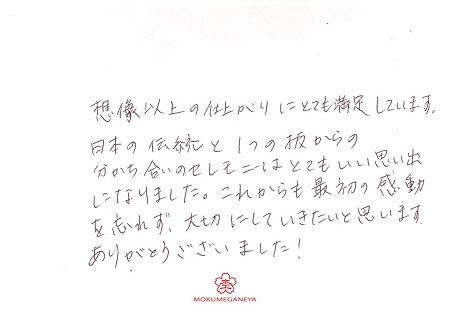 想像以上の仕上がりにとても満足しています。
日本の伝統と1つの板からの
分かち合いのセレモニーはとてもいい思い出
になりました。これからも最初の感動
を忘れず、大切にしていきたいと思います
ありがとうございました!
杢
MOKUMEGANEYA